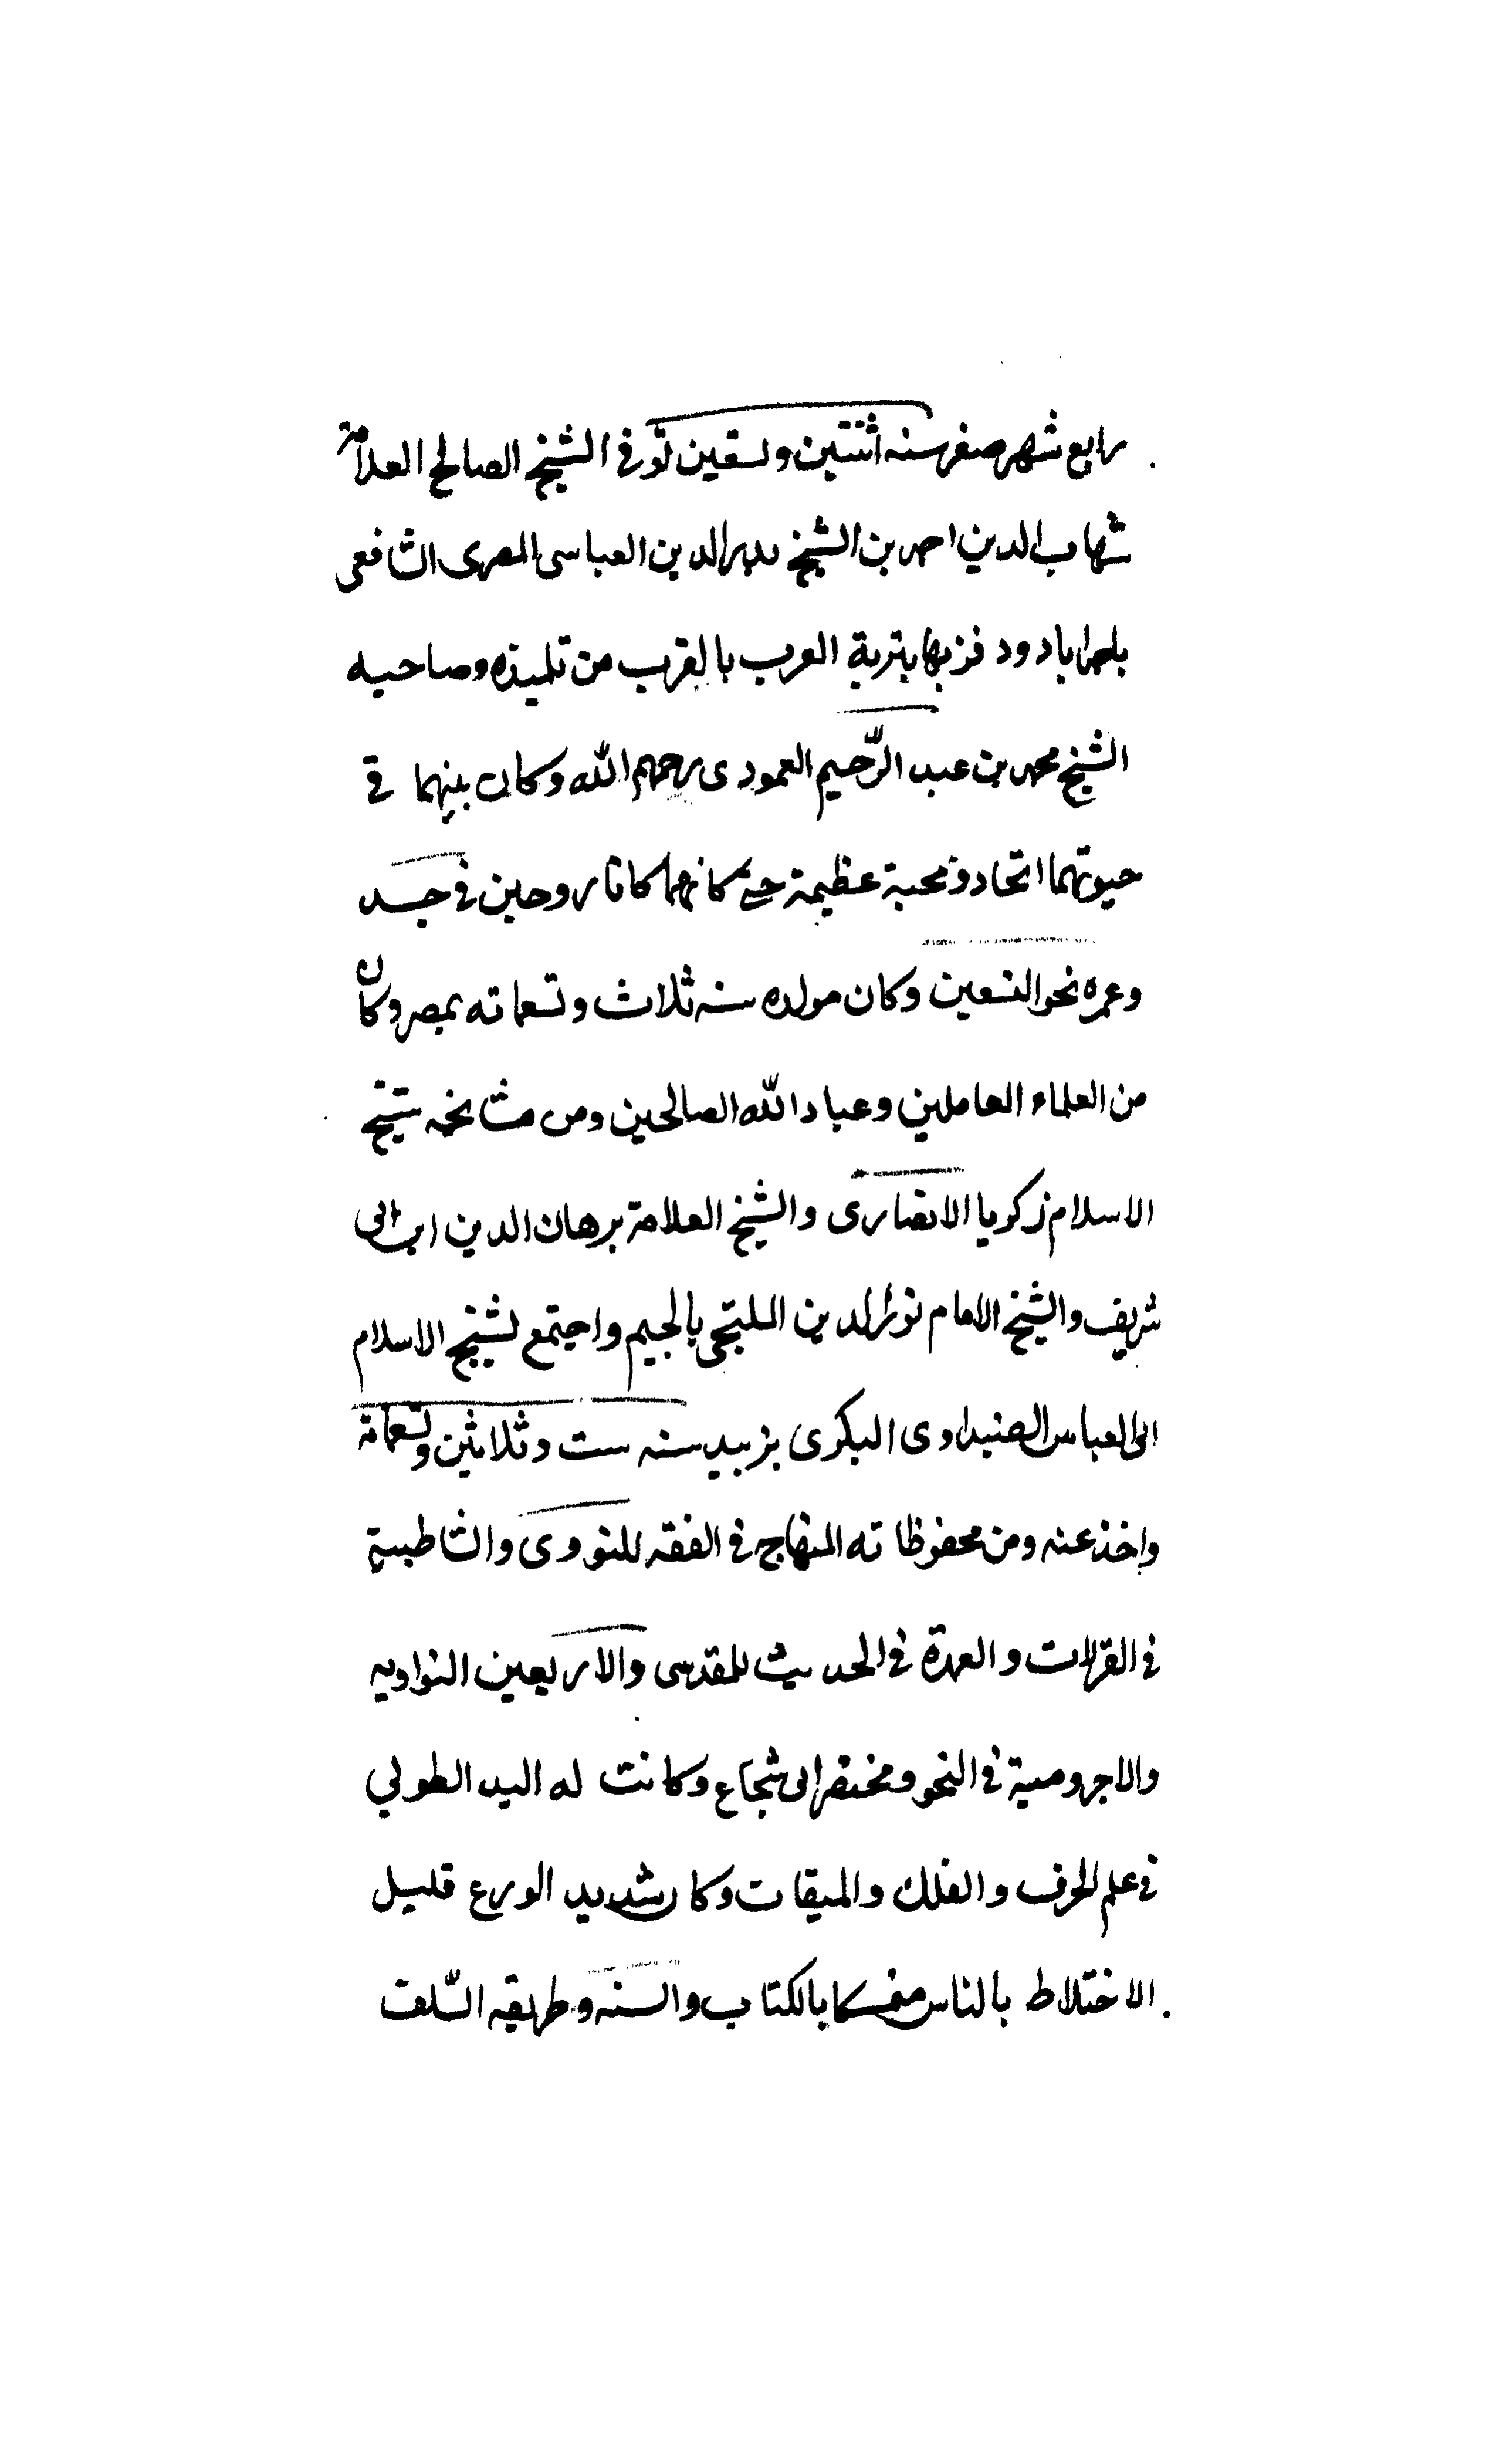 رابع شهر صفر سنه اثنتين وتسعين توفى الشيخ الصالح العلامة
شهاب الدين احمد بن الشيخ بدر الدين العباسى المصرى الشافعى
باحمد اباد ودفن بها بتربة العرب بالقرب من تلميذه وصاحبه
الشيخ محمد بن عبد الرّحيم العمودى رحمهم الله وكان بينهما في
حيوتهما اتحاد ومحبة عظيمة حتى كانهما كانا روحين فى جسد
وعمره نحو التسعين وكان مولده سنه ثلاث وتسعماته بمصر وكان
من العلماء العاملين وعباد الله الصالحين ومن مشائخه شيخ
الاسلام زكريا الانصارى والشيخ العلامة برهان الدين ابن ابى
شريف والشيخ الامام نور الدين الملتجى بالجيم واجتمع بشيخ الاسلام
ابى العباس الطنبداوى البكرى بزبيد سنه ست وثلاثين وتسعماة
واخذ عنه ومن محفوظاته المنهاج فى الفقه للنووى والشاطبية
فى القرات والعمدة فى الحديث للمقدسى والاربعين النواويه
والاجرومية فى النحو ومختصر ابى شجاع وكانت له اليد الطولي
فى علم الحرف والفلك والميقات وكان شديد الورع قليل
الاختلاط بالناس متمسكا بالكتاب والسنه وطريقه السّلف